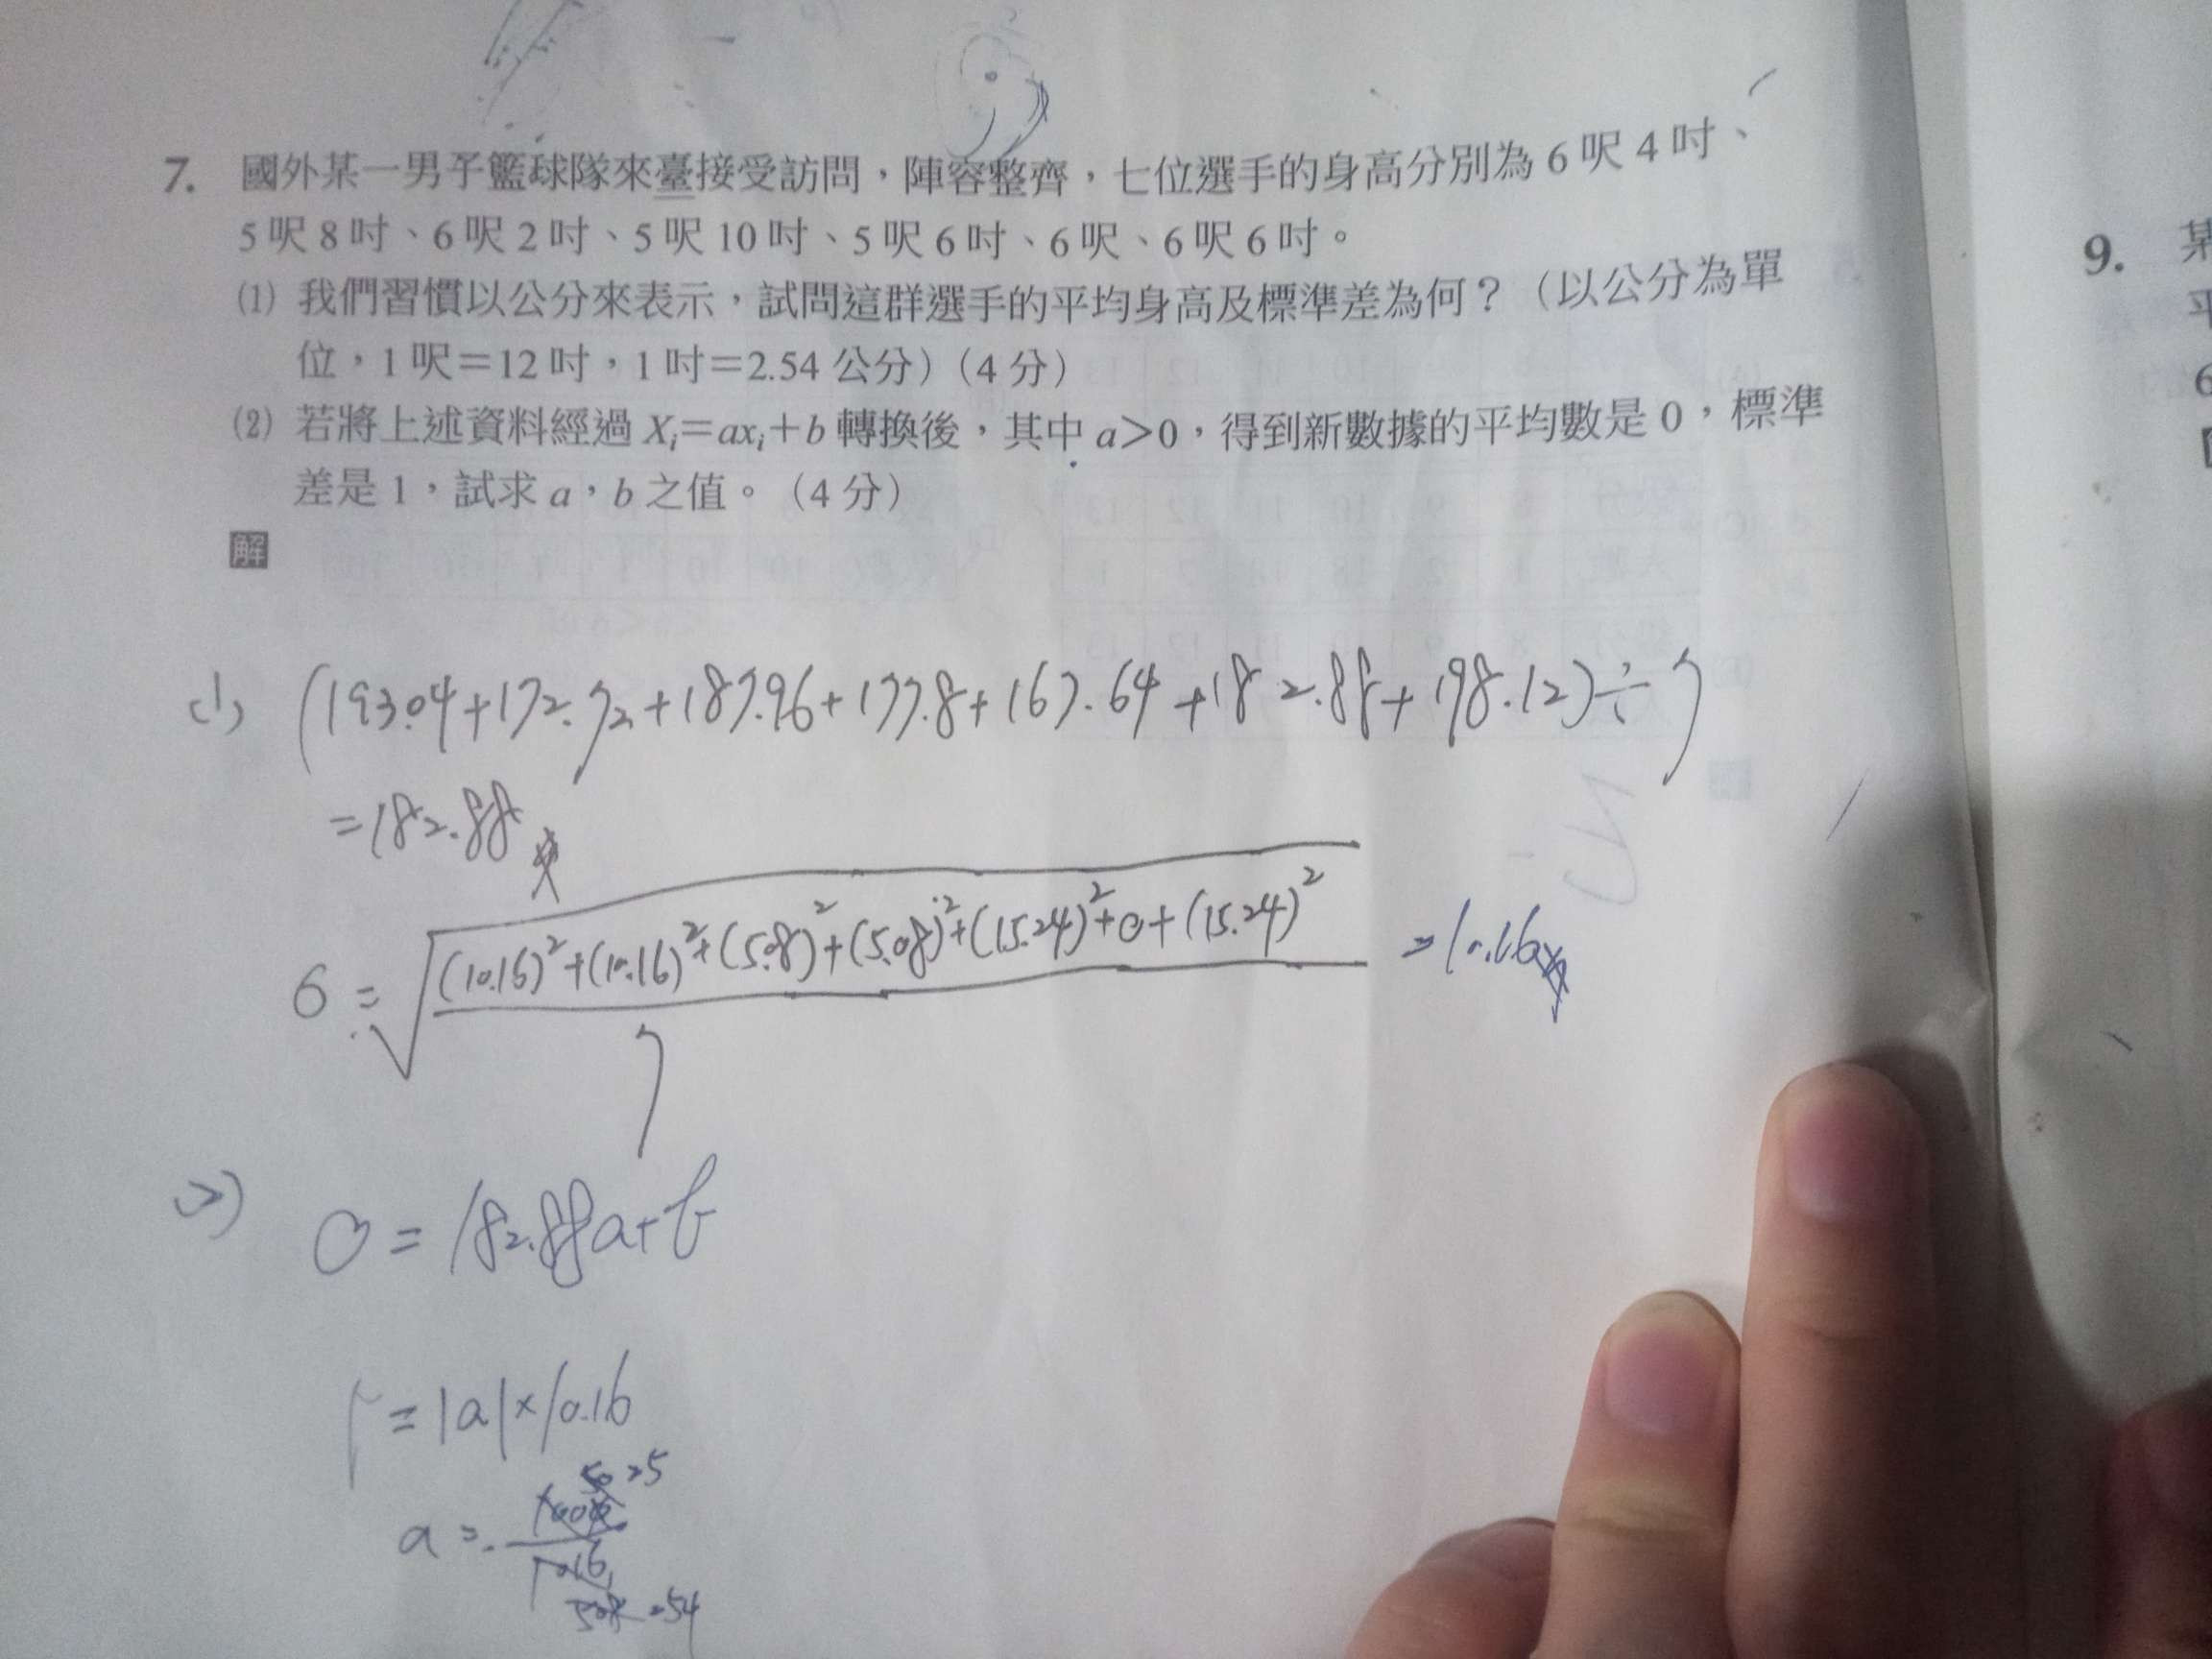 7. 國外某一男子籃球隊來臺接受訪問，陣容整齊，七位選手的身高分別為 6 呎 4 吋、
5 呎 8 吋、6 呎 2 吋、5 呎 10 吋、5 呎 6 吋、6 呎、6 呎 6 吋。
⑴ 我們習慣以公分來表示，試問這群選手的平均身高及標準差為何？（以公分為單
位，1 呎＝12 吋，1 吋＝2.54 公分）（4 分）
⑵ 若將上述資料經過 Xᵢ＝axᵢ＋b 轉換後，其中 a＞0，得到新數據的平均數是 0，標準
差是 1，試求 a，b 之值。（4 分）
解
(1) (193.04+172.72+187.96+177.8+167.64+182.88+198.12)÷7
=182.88
6 = √((10.16)²+(10.16)²+(5.08)²+(5.08)²+(15.24)²+0+(15.24)²)/7 = 10.16
(2) 0=182.88a+b
1=|a|×10.16
a=
9. 某
平
6